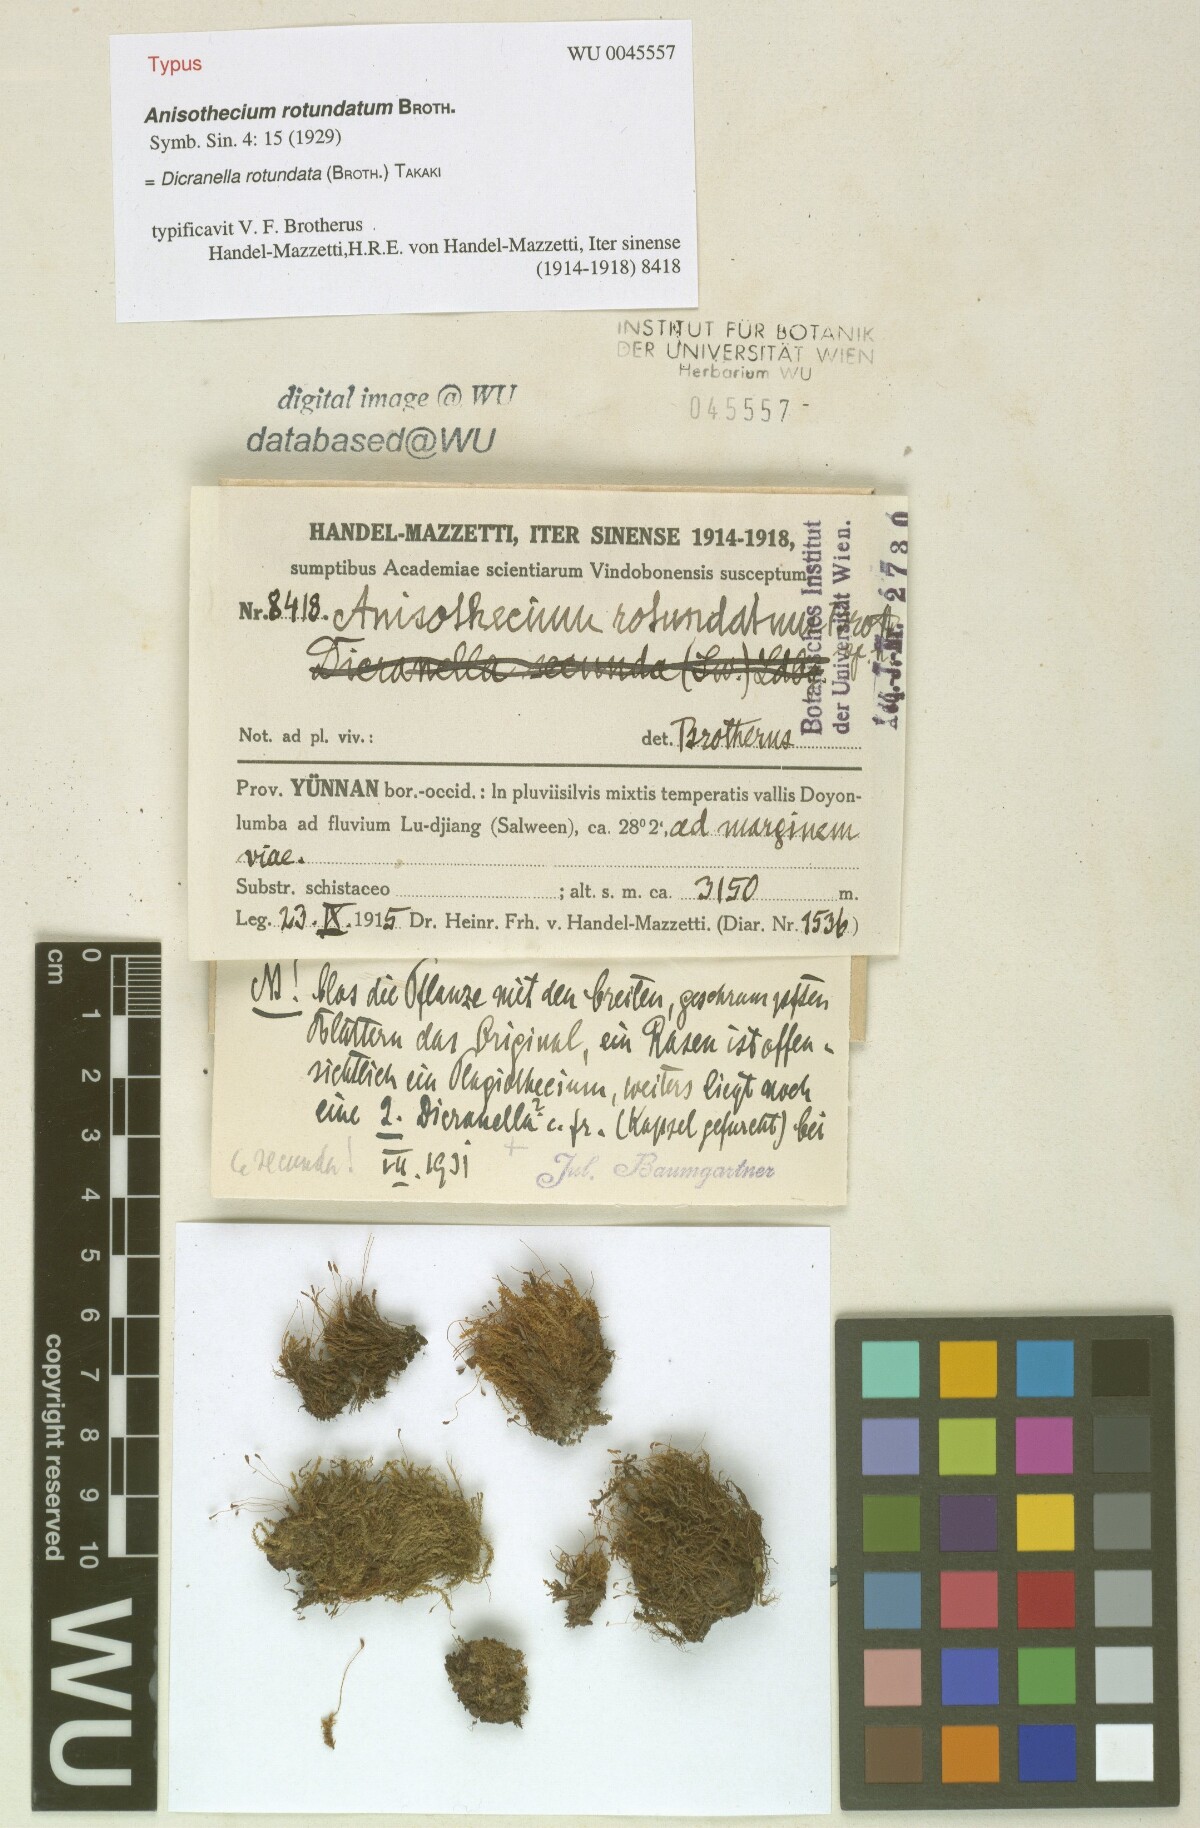 Typus
WU 0045557
Anisothecium rotundatum BROTH.
Symb. Sin. 4: 15 (1929)
= Dicranella rotundata (BROTH.) TAKAKI
typificavit V. F. Brotherus
Handel-Mazzetti,H.R.E. von Handel-Mazzetti, Iter sinense
(1914-1918) 8418
INSTITUT FÜR BOTANIK
DER UNIVERSITÄT WIEN
Herbarium WU
045557
digital image @ WU
databased@WU
HANDEL-MAZZETTI, ITER SINENSE 1914-1918,
sumptibus Academiae scientiarum Vindobonensis susceptum
Nr. 8418. Anisothecium rotundatum Broth.
Dicranella secunda (Sw.)
Not. ad pl. viv.: det. Brotherus
Prov. YÜNNAN bor.-occid.: In pluviisilvis mixtis temperatis vallis Doyon-
lumba ad fluvium Lu-djiang (Salween), ca. 28° 2', ad marginem
viae.
Substr. schistaceo ; alt. s. m. ca. 3150 m.
Leg. 23. IX. 1915 Dr. Heinr. Frh. v. Handel-Mazzetti. (Diar. Nr. 1536)
Botanisches Institut
der Universität Wien.
2730
NB! blos die Pflanze mit den breiten, geschrumpften
Blättern das Original, ein Rasen ist offen-
sichtlich ein Plagiothecium, weiters liegt noch
eine 2. Dicranella? c. fr. (Kapsel gefurcht) bei
secunda! VII. 1931 + Jul. Baumgartner
cm
0
1
2
3
4
5
6
7
8
9
10
copyright reserved
WU